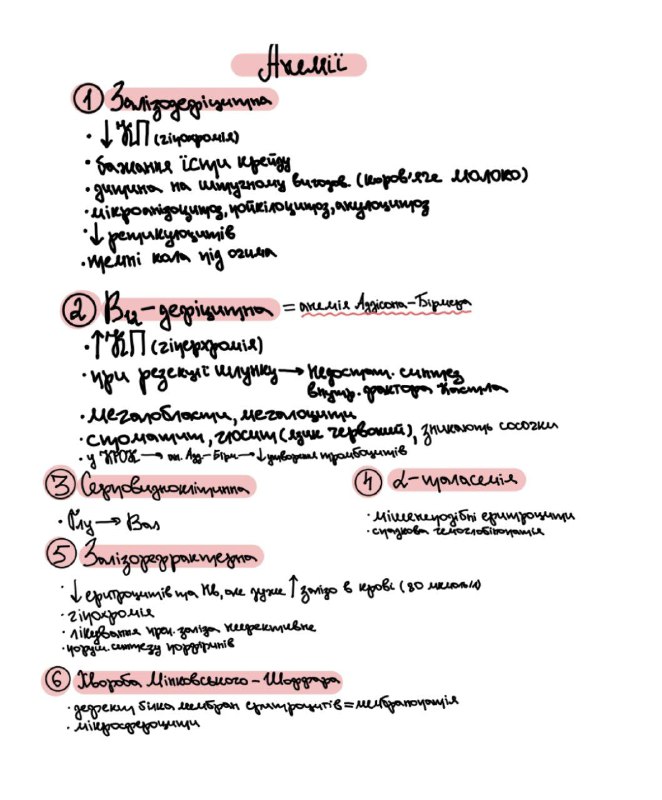 Анемії
① Залізодефіцитна
• ↓ КП (гіпохромія)
• бажання їсти крейду
• дитина на штучному вигодов. (коров'яче молоко)
• мікроанізоцитоз, пойкілоцитоз, анулоцитоз
• ↓ ретикулоцитів
• темні кола під очима
② В12-дефіцитна = анемія Аддісона-Бірмера
• ↑ КП (гіперхромія)
• при резекції шлунку → недостат. синтез
внутр. фактора Кастла
• мегалобласти, мегалоцити
• стоматит, глосит (язик червоний), зникають сосочки
• у → ан. Адд-Бірм → ↓ утворення тромбоцитів
③ Серповидноклітинна
• Глу → Вал
④ α-таласемія
• мішенеподібні еритроцити
• спадкова гемоглобінопатія
⑤ Залізорефрактерна
• ↓ еритроцитів та Hb, але дуже ↑ залізо в крові (80 мкмоль/л)
• гіпохромія
• лікування преп. заліза неефективне
• поруш. синтезу порфіринів
⑥ Хвороба Мінковського-Шоффара
• дефект білка мембран еритроцитів = мембранопатія
• мікросфероцити